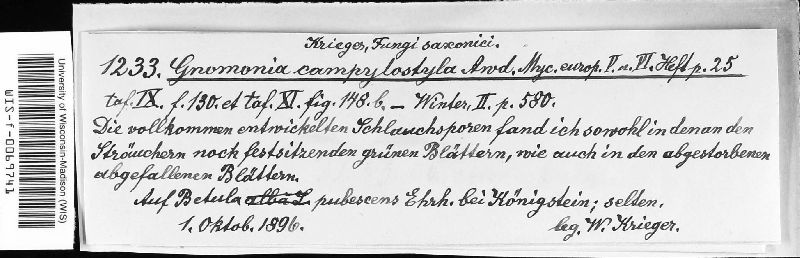 Krieger, Fungi saxonici.
1233. Gnomonia campylostyla Awd. Myc. europ. V. u. VI. Heft p. 25
taf. IX. f. 130. et taf. XI. fig. 148. b. — Winter, II. p. 580.
Die vollkommen entwickelten Schlauchsporen fand ich sowohl in den an den
Sträuchern noch festsitzenden grünen Blättern, wie auch in den abgestorbenen
abgefallenen Blättern.
Auf Betula alba L. pubescens Ehrh. bei Königstein; selten.
1. Oktob. 1896. leg. W. Krieger.
University of Wisconsin-Madison (WIS)
WIS-f-0069741